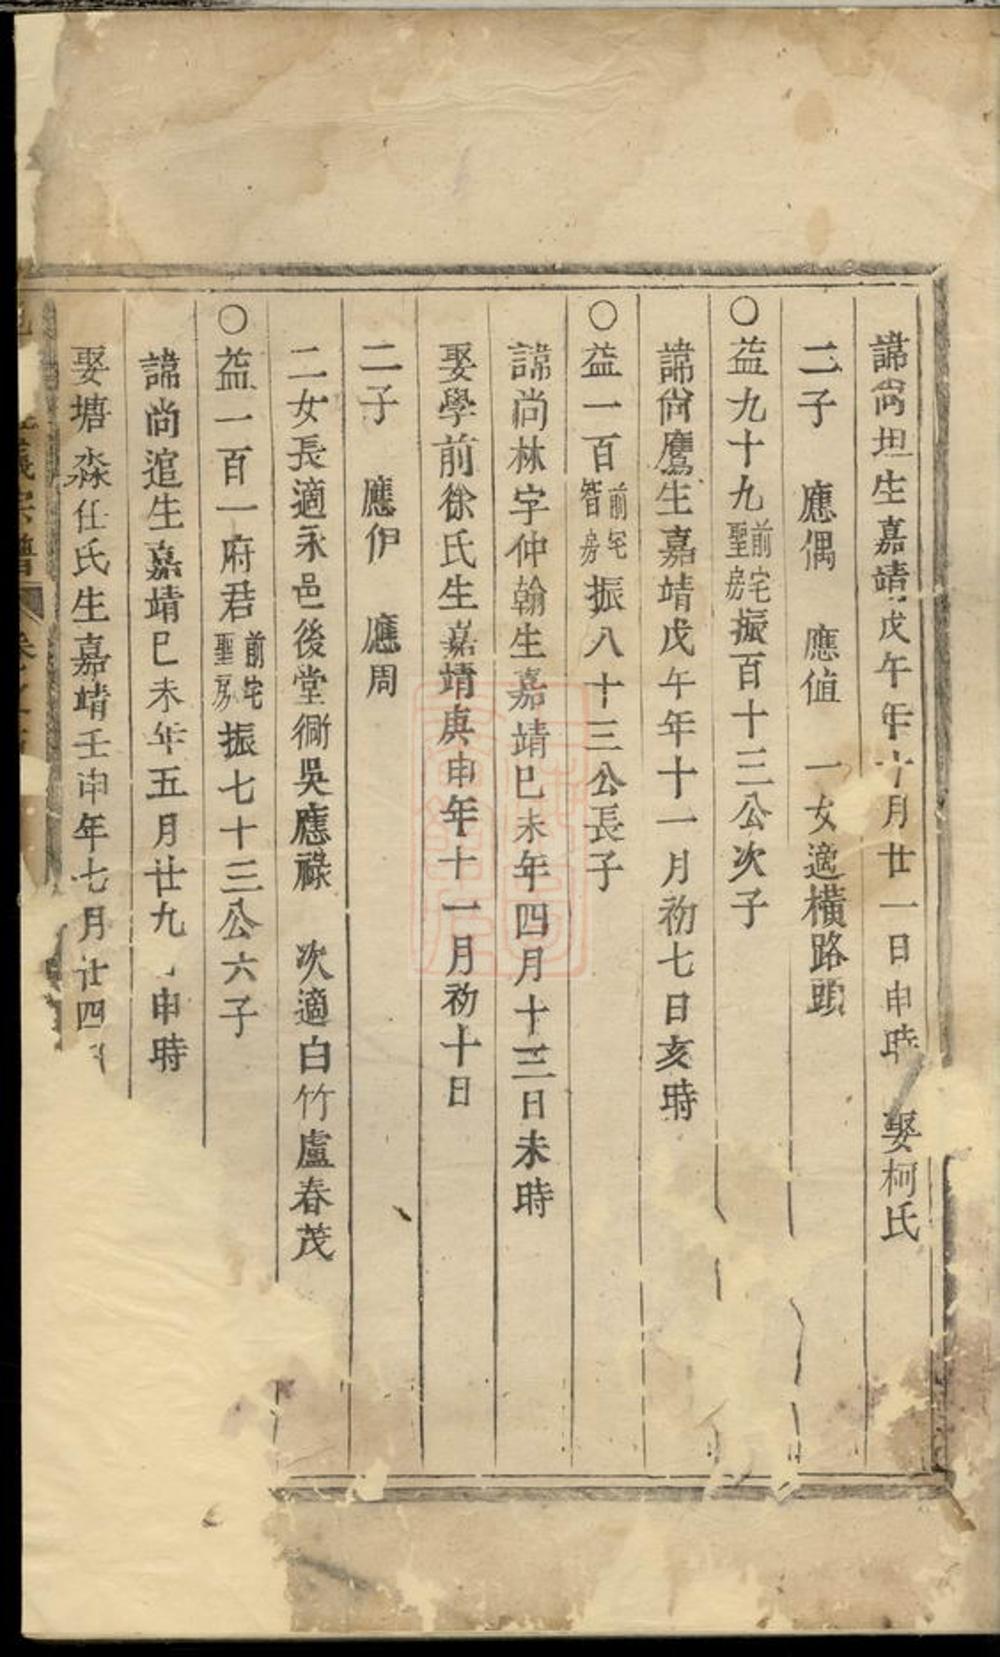 諱尙坦生嘉靖戊午年十月廿一日申時　娶柯氏
二子　應偶　應值　一女適橫路頭
○益九十九前宅聖房振百十三公次子
諱尙鷹生嘉靖戊午年十一月初七日亥時
○益一百前宅智房振八十三公長子
諱尚林字仲翰生嘉靖巳未年四月十三日未時
娶學前徐氏生嘉靖庚申年十一月初十日
二子　應伊　應周
二女長適永邑後堂衕吳應祿　次適白竹盧春茂
○益一百一府君前宅聖房振七十三公六子
諱尚逭生嘉靖巳未年五月廿九　申時
娶塘淼仕氏生嘉靖壬申年七月廿四
宗譜